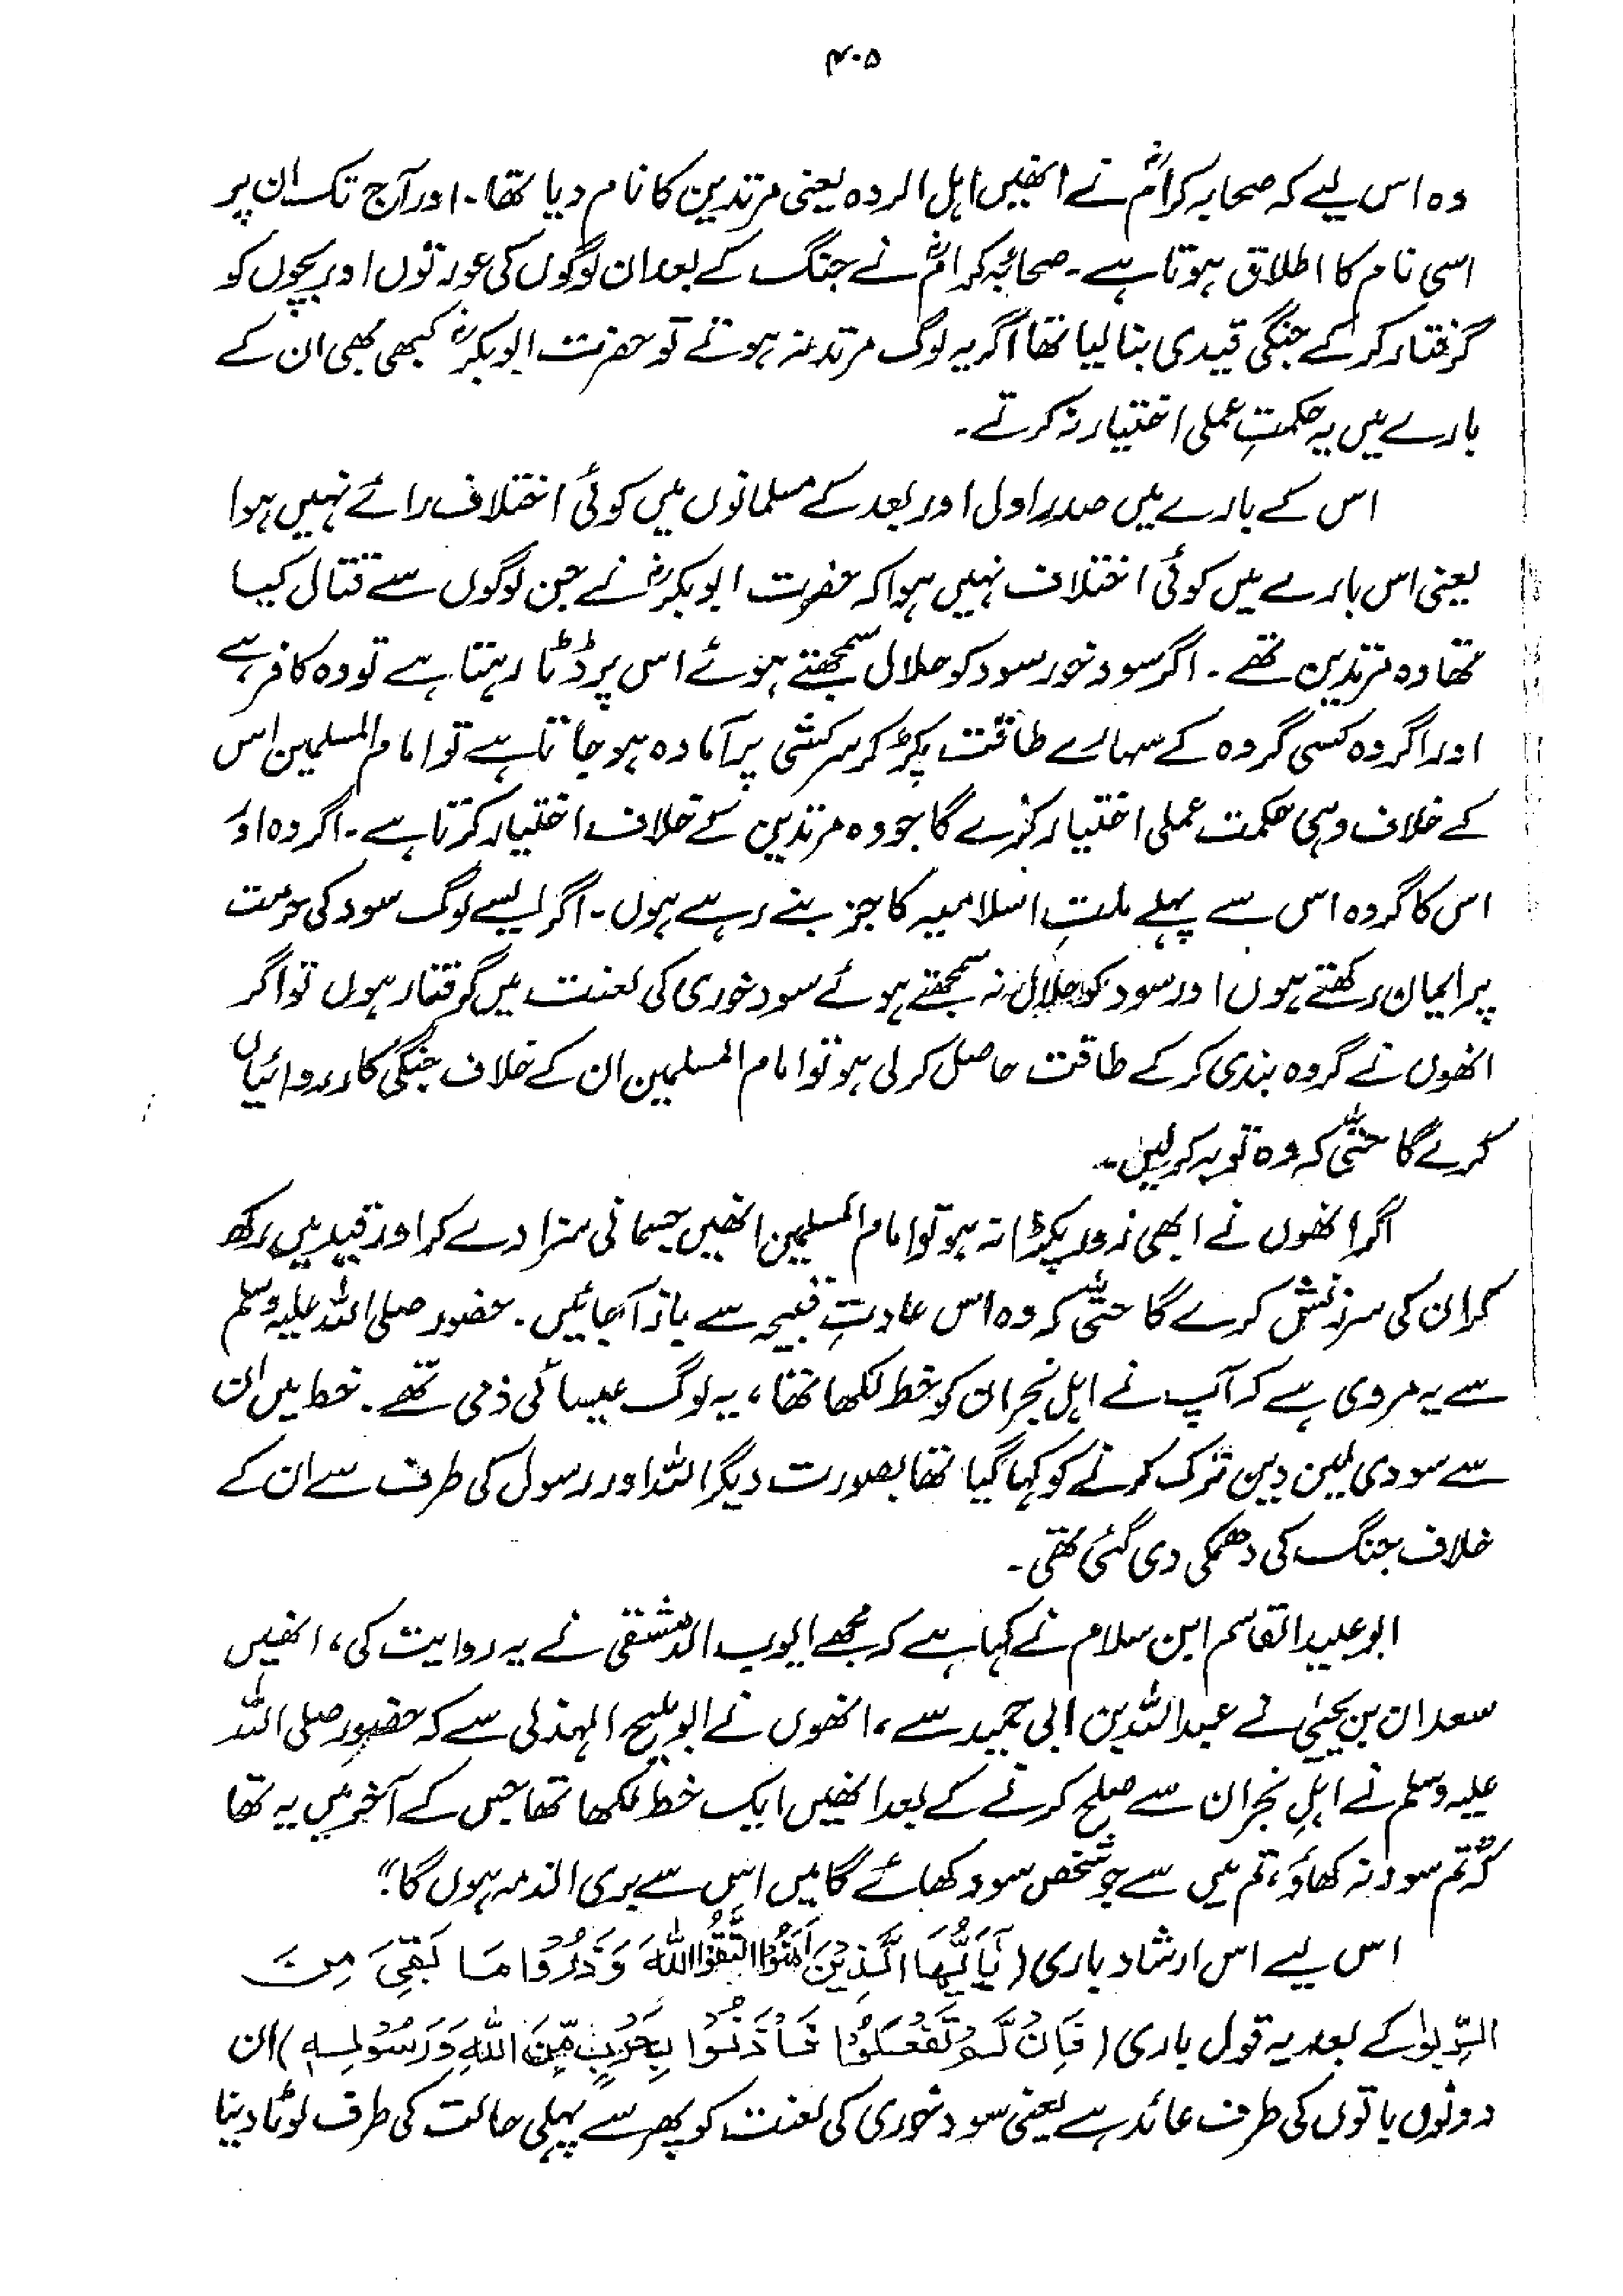 ۴۰۵
وہ اس لیے کہ صحابہ کرامؓ نے انھیں اہل الردہ یعنی مرتدین کا نام دیا تھا۔ اور آج تک ان پر
اسی نام کا اطلاق ہوتا ہے۔ صحابہ کرامؓ نے جنگ کے بعد ان لوگوں کی عورتوں اور بچوں کو
گرفتار کر کے جنگی قیدی بنا لیا تھا اگر یہ لوگ مرتد نہ ہوتے تو حضرت ابوبکرؓ کبھی بھی ان کے
بارے میں یہ حکمتِ عملی اختیار نہ کرتے۔
اس کے بارے میں صدر اول اور بعد کے مسلمانوں میں کوئی اختلاف رائے نہیں ہوا
یعنی اس بارے میں کوئی اختلاف نہیں ہوا کہ حضرت ابوبکرؓ نے جن لوگوں سے قتال کیا
تھا وہ مرتدین تھے۔ اگر سود خور سود کو حلال سمجھتے ہوئے اس پر ڈٹا رہتا ہے تو وہ کافر ہے
اور اگر وہ کسی گروہ کے سہارے طاقت پکڑ کر سرکشی پر آمادہ ہو جاتا ہے تو امام المسلمین اس
کے خلاف وہی حکمت عملی اختیار کرے گا جو وہ مرتدین کے خلاف اختیار کرتا ہے۔ اگر وہ اور
اس کا گروہ اس سے پہلے ملتِ اسلامیہ کا جز بنے رہے ہوں۔ اگر ایسے لوگ سود کی حرمت
پر ایمان رکھتے ہوں اور سود کو حلال نہ سمجھتے ہوئے سود خوری کی لعنت میں گرفتار ہوں تو اگر
انھوں نے گروہ بندی کر کے طاقت حاصل کر لی ہو تو امام المسلمین ان کے خلاف جنگی کارروائیاں
کرے گا حتیٰ کہ وہ توبہ کر لیں۔
اگر انھوں نے ابھی زور پکڑا نہ ہو تو امام المسلمین انھیں جسمانی سزا دے کر اور قید میں رکھ
کر ان کی سرزنش کرے گا حتیٰ کہ وہ اس عادتِ قبیحہ سے باز آجائیں۔ حضور صلی اللہ علیہ وسلم
سے یہ مروی ہے کہ آپ نے اہل نجران کو خط لکھا تھا، یہ لوگ عیسائی ذمی تھے۔ خط میں ان
سے سودی لین دین ترک کرنے کو کہا گیا تھا بصورت دیگر اللہ اور رسول کی طرف سے ان کے
خلاف جنگ کی دھمکی دی گئی تھی۔
ابو عبید القاسم ابن سلام نے کہا ہے کہ مجھے ایوب الدمشقی نے یہ روایت کی، انھیں
سعدان بن یحییٰ نے عبداللہ بن ابی حمید سے، انھوں نے ابو ملیح الہذلی سے کہ حضور صلی اللہ
علیہ وسلم نے اہلِ نجران سے صلح کرنے کے بعد انھیں ایک خط لکھا تھا جس کے آخر میں یہ تھا
کہ "تم سود نہ کھاؤ، تم میں سے جو شخص سود کھائے گا میں اس سے بری الذمہ ہوں گا"۔
اس لیے اس ارشاد باری (يَآ اَيُّهَا الَّذِيْنَ اٰمَنُوا اتَّقُوا اللّٰهَ وَذَرُوْا مَا بَقِيَ مِنَ
الرِّبوٰا) کے بعد یہ قول باری (فَاِنْ لَّمْ تَفْعَلُوْا فَأْذَنُوْا بِحَرْبٍ مِّنَ اللّٰهِ وَرَسُوْلِهٖ) ان
دونوں باتوں کی طرف عائد ہے یعنی سود خوری کی لعنت کو پھر سے پہلی حالت کی طرف لوٹا دینا